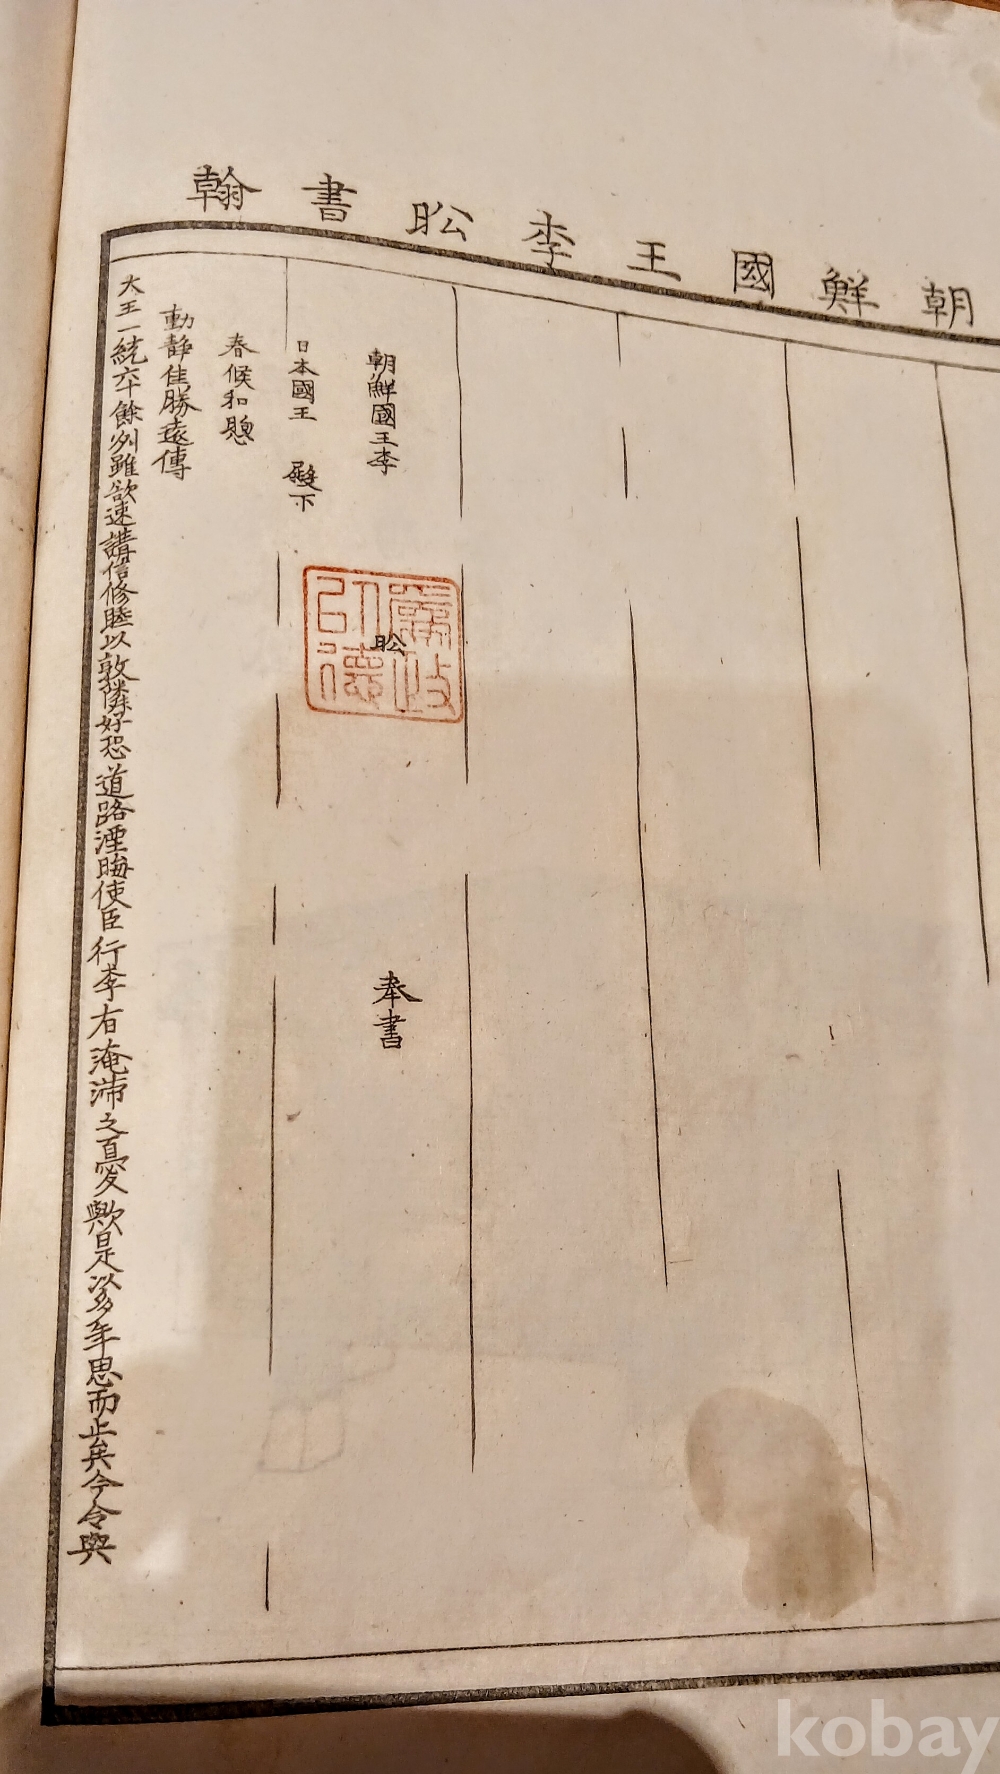 朝鮮國王李昖書翰
朝鮮國王李 昖 奉書
日本國王 殿下
春候和
動靜佳勝遠傳
大王一統六十餘州雖欲速講信修睦以敦隣好恐道路湮晦使臣行李有淹滯之憂歟是以多年思而止矣今令與
kobay